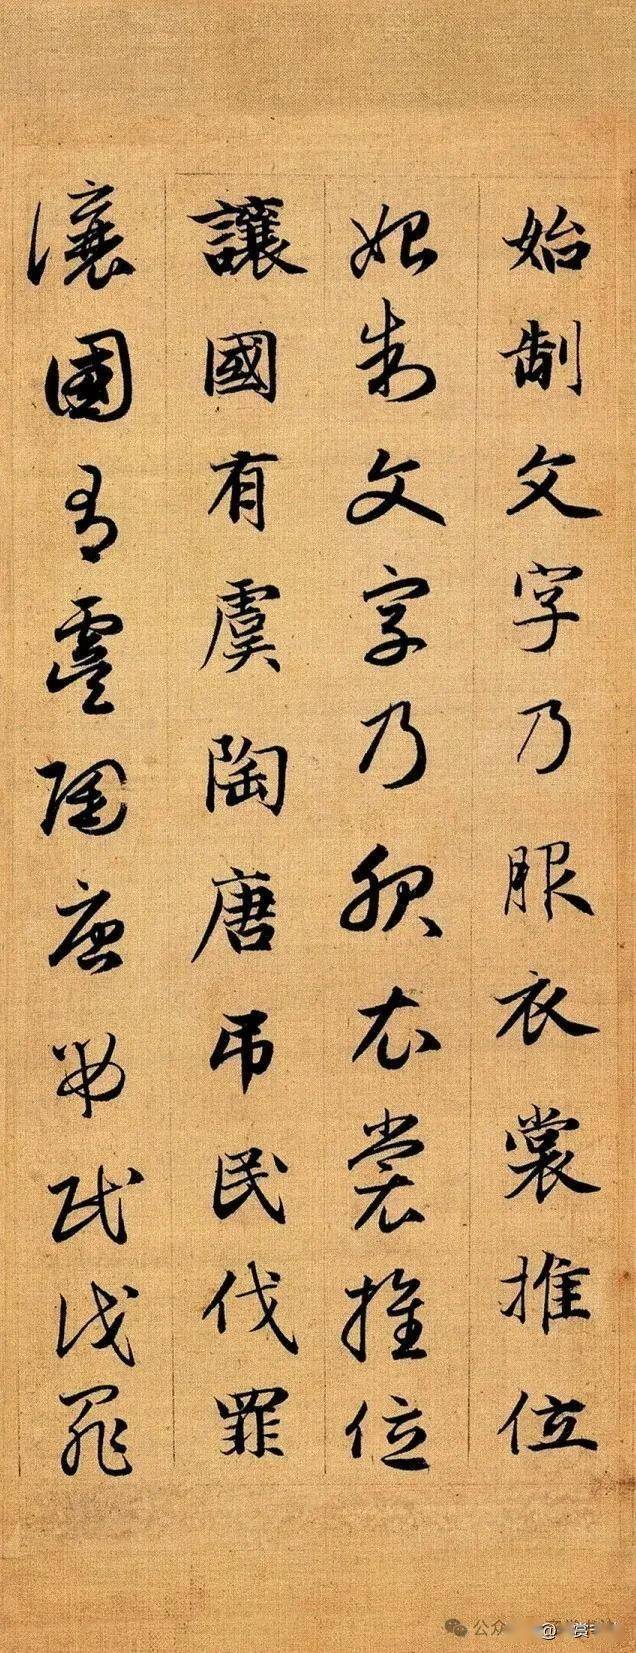 始制文字乃服衣裳推位
始制文字乃服衣裳推位
讓國有虞陶唐吊民伐罪
讓國有虞陶唐吊民伐罪
公众
@ 赏